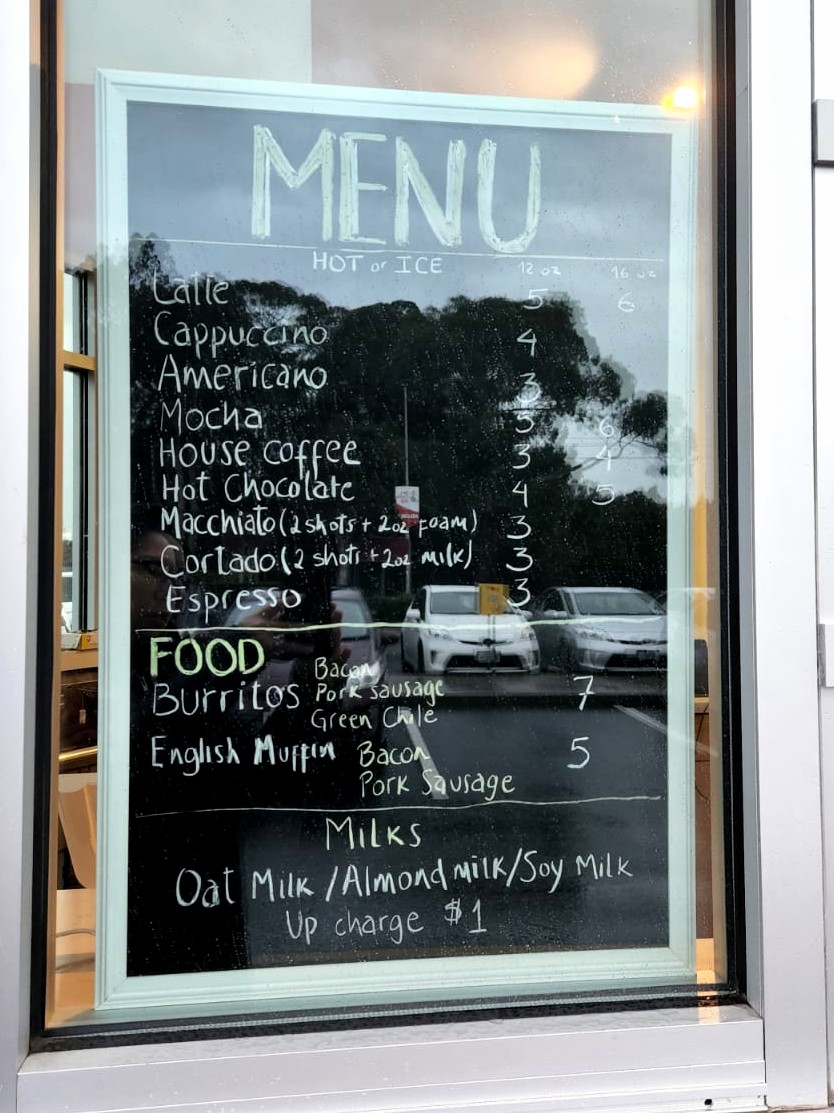 MENU
HOT or ICE 12 oz 16 oz
Latte 5 6
Cappuccino 4
Americano 3
Mocha 5 6
House coffee 3 4
Hot Chocolate 4 5
Macchiato (2 shots + 2oz foam) 3
Cortado (2 shots + 2oz milk) 3
Espresso 3
FOOD
Bacon
Burritos Pork sausage 7
Green Chile
English Muffin Bacon 5
Pork Sausage
Milks
Oat Milk / Almond milk / Soy Milk
Up charge $1